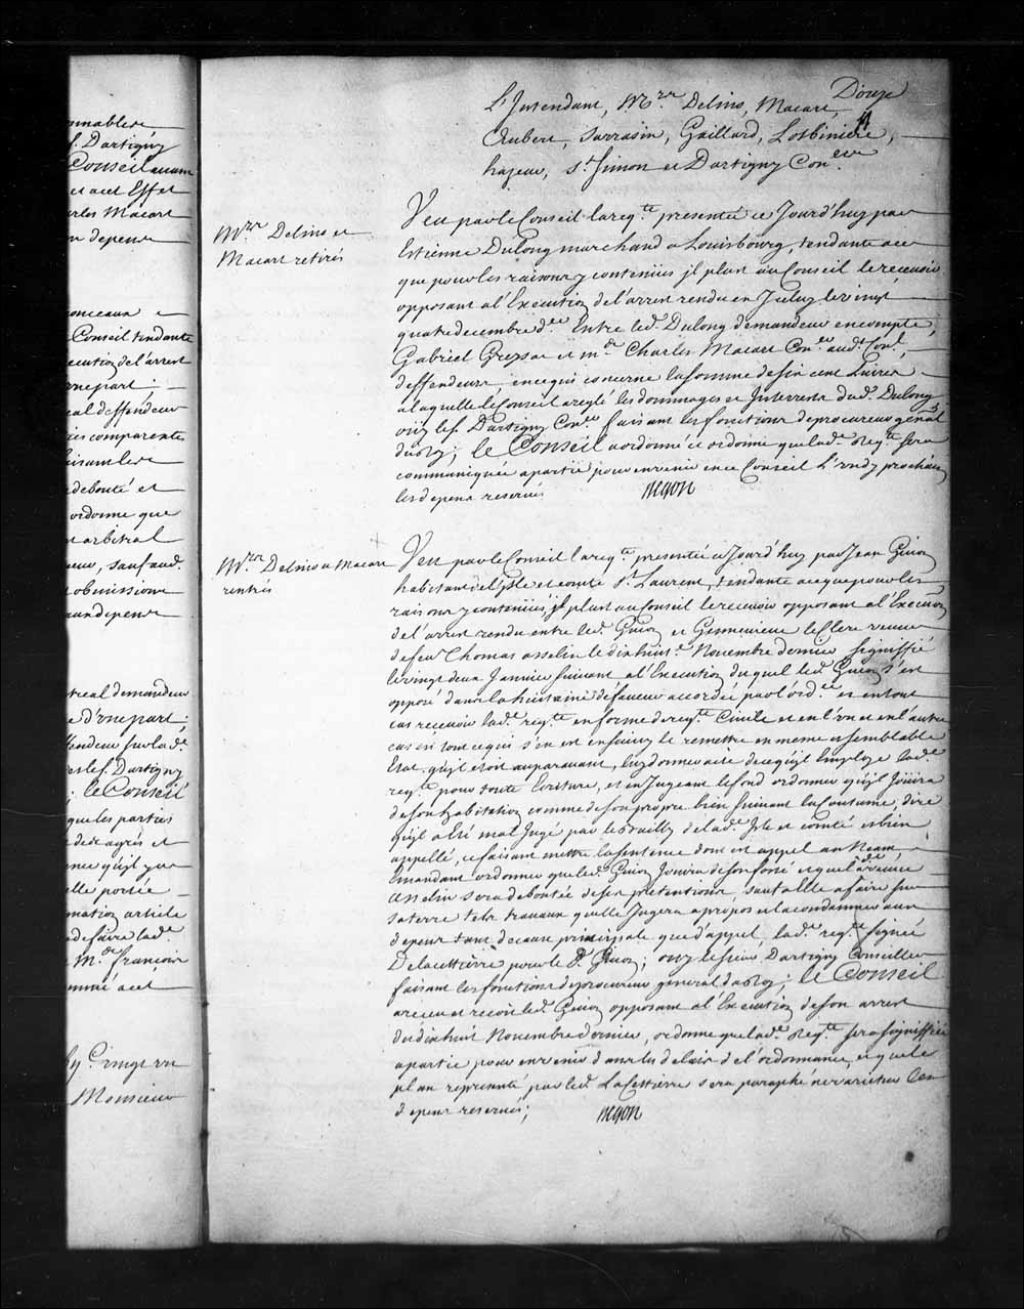 nnablem̃
s. Dartigny
Conseil
et acel Effet
rles Macart
en depens
Conseil tendante
ecution de l'arrest
une part
cal deffendeur
ies comparentes
debouté et
ordonne que
arbitral
sauf aud.
obmissions
aux depens
treal demandeur
e d'une part;
ffendeur sur lad.e
les s. Dartigny
; le Conseil
que les parties
de degrés et
elle portée
mation article
de faire lad.e
M.e françois
Monsieur
Douze
L'Intendant, M.rs Delino, Macart,
Aubert, Sarrasin, Gaillard, Lotbiniere,
hazeur, S.t Simon et Dartigny Con.ers
M.rs Delino et
Macart retirés
Veu par le Conseil la req.te presentée ce Jourd'huy par
Estienne Dulong marchand a Louisbourg, tendante a ce
que pour les raisons y contenües jl plust au Conseil le recevoir
opposant a l'Execution de l'arrest rendu en Iceluy le vingt
quatre decembre d.er Entre led. Dulong demandeur en compte,
Gabriel Greysac et m.e Charles Macart Con.er aud.t Con.l,
deffendeurs en ce qui concerne la somme de six cent Livres
a laquelle le Conseil a reglé les dommages et Interests dud. Dulong,
oüy le s. Dartigny Con.er faisant les fonctions de procureur general
du Roy; le Conseil a ordonné et ordonne que lad.e Req.te sera
communiquée a partie pour en venir en ce Conseil Lundy prochain
les depens reservés
Begon
M.rs Delino et Macart
rentrés
Veu par le Conseil la req.te presentée ce Jourd'huy par Jean Guion
habitant de l'isle et comté S.t Laurent, tendante a ce que pour les
raisons y contenües, jl plust au Conseil le recevoir opposant a l'Execution
de l'arrest rendu entre led. Guion et Genneuieue leClerc veuue
de feu Thomas asselin le dix huit.e Nouembre dernier signiffié
le vingt deux Januier suiuant a l'Execution duquel led. Guion s'est
opposé dans la huitaine de faueur accordée par l'ord.ce et en tout
cas receuoir lad.e req.te en forme de req.te Ciuile et en l'vn et en l'autre
cas en tout ce qui s'en est ensuiuy le remettre en meme et semblable
Etat qu'jl etoit auparauant, luy donner acte de ce qu'jl Employe lad.e
req.te pour toute Ecriture, et en Jugeant le fond ordonner qu'jl Jöüira
de son habitation comme de son propre bien suiuant la Coutume, dire
qu'jl a eté mal Jugé par le Bailly de lad.e Isle et comté et bien
appellé, ce faisant mettre la sentence dont est appel au Neant,
Emandant ordonner que led. Guion Jouira de son fossé et que lad.e veuue
asselin sera deboutée de ses pretentions sauf a Elle a faire sur
sa terre tels trauaux qu'elle Jugera a propos et la condamner aux
depens tant de cause principale que d'appel, lad.e req.te signée
Delacettierre pour le d. Guion; ouy le sieur Dartigny Conseiller
faisant les fonctions de procureur general du Roy; le Conseil
a receu et reçoit led. Guion opposant a l'Execution de son arrest
du dix huit Nouembre dernier, ordonne que lad.e Req.te sera signiffiée
a partie pour en venir dans les delais de l'ordonnance, et que le
plan representé par led. Lacettierre sera paraphé ne varietur les
depens reservés;
Begon